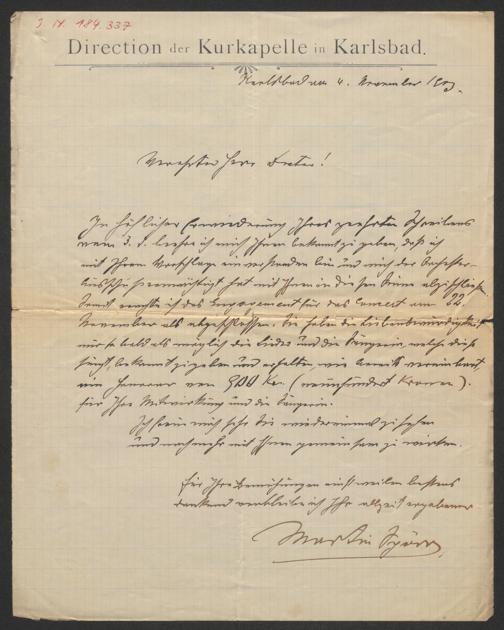 I. N. 184.337
Direction der Kurkapelle in Karlsbad.
Karlsbad am 4. November 1903.
Verehrter Herr
In höflicher Erwiederung Ihres geehrten Schreibens
vom 3. d. beehre ich mich Ihnen bekannt zu geben, daß ich
mit Ihrem Vorschlage einverstanden bin und mich der Orchester
ermächtigt hat mit Ihnen in diesem Sinne abzuschließen.
ich das Engagement für das Concert am 22
November als abgeschlossen. Sie haben die Liebenswürdigkeit
mir so bald als möglich die Lieder und die Sängerin, welche dieselben
singt, bekannt zu geben und erhalten, wie bereits vereinbart,
ein Honorar von 900 Kr. (neunhundert Kronen).
für Ihre Mitwirkung und die Sängerin.
Ich freue mich sehr Sie wiedereinmal zu sehen
und noch mehr mit Ihnen gemeinsam zu wirken.
Für Ihre Bemühungen einstweilen bestens
dankend verbleibe ich Ihr allzeit ergebener
Martin Spörr